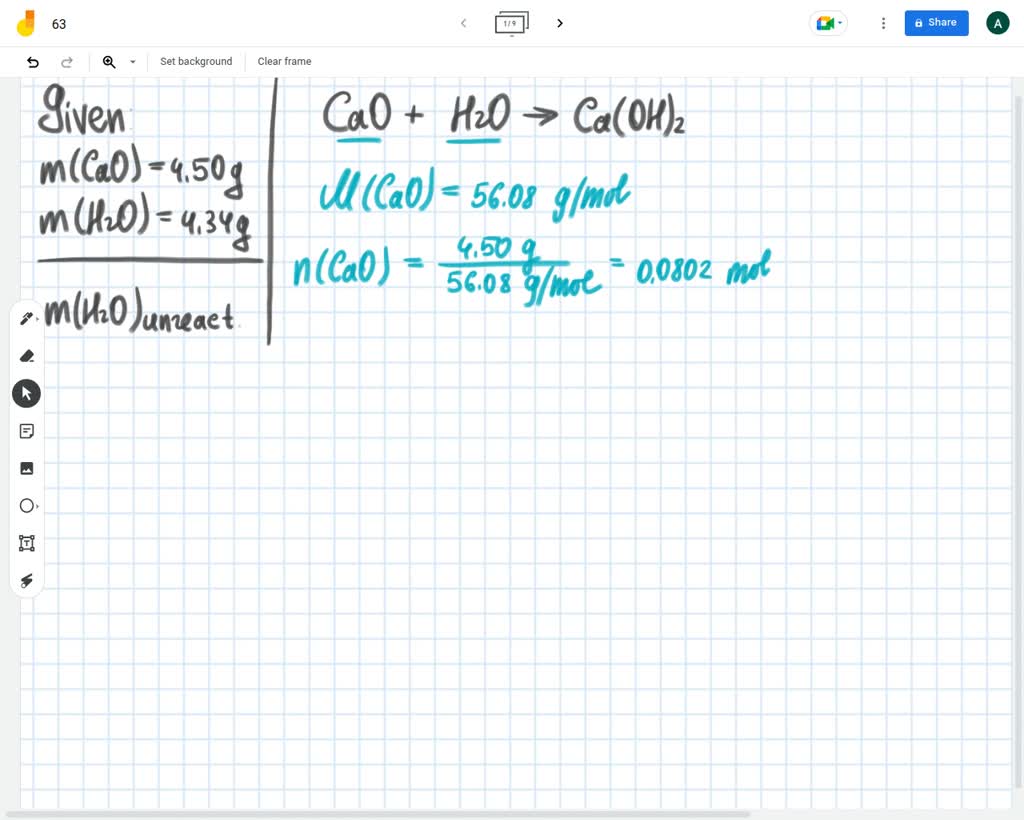 63
1/9
Share
A
Set background
Clear frame
Given:
m(CaO) = 4.50 g
m(H₂O) = 4.34 g
m(H₂O)unreact.
CaO + H₂O → Ca(OH)₂
M(CaO) = 56.08 g/mol
n(CaO) = 4.50 g / 56.08 g/mol = 0.0802 mol